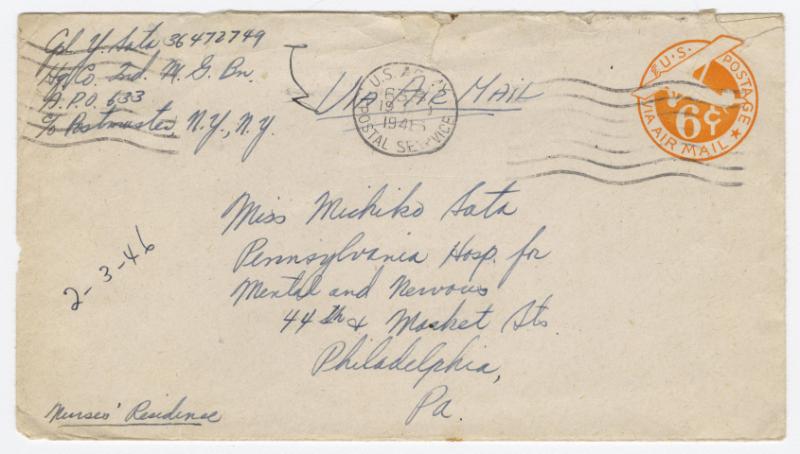 Cpl Y. Sata 36472749
Hq Co. 2nd. M. G. Bn.
A.P.O. 633
c/o Postmaster, N.Y., N.Y.
Via Air Mail
U.S. ARMY
194
POSTAL SERVICE
U.S. POSTAGE
6¢
VIA AIR MAIL
Miss Michiko Sata
Pennsylvania Hosp. for
Mental and Nervous
44th & Market Sts.
Philadelphia,
Pa.
2-3-46
Nurses' Residence